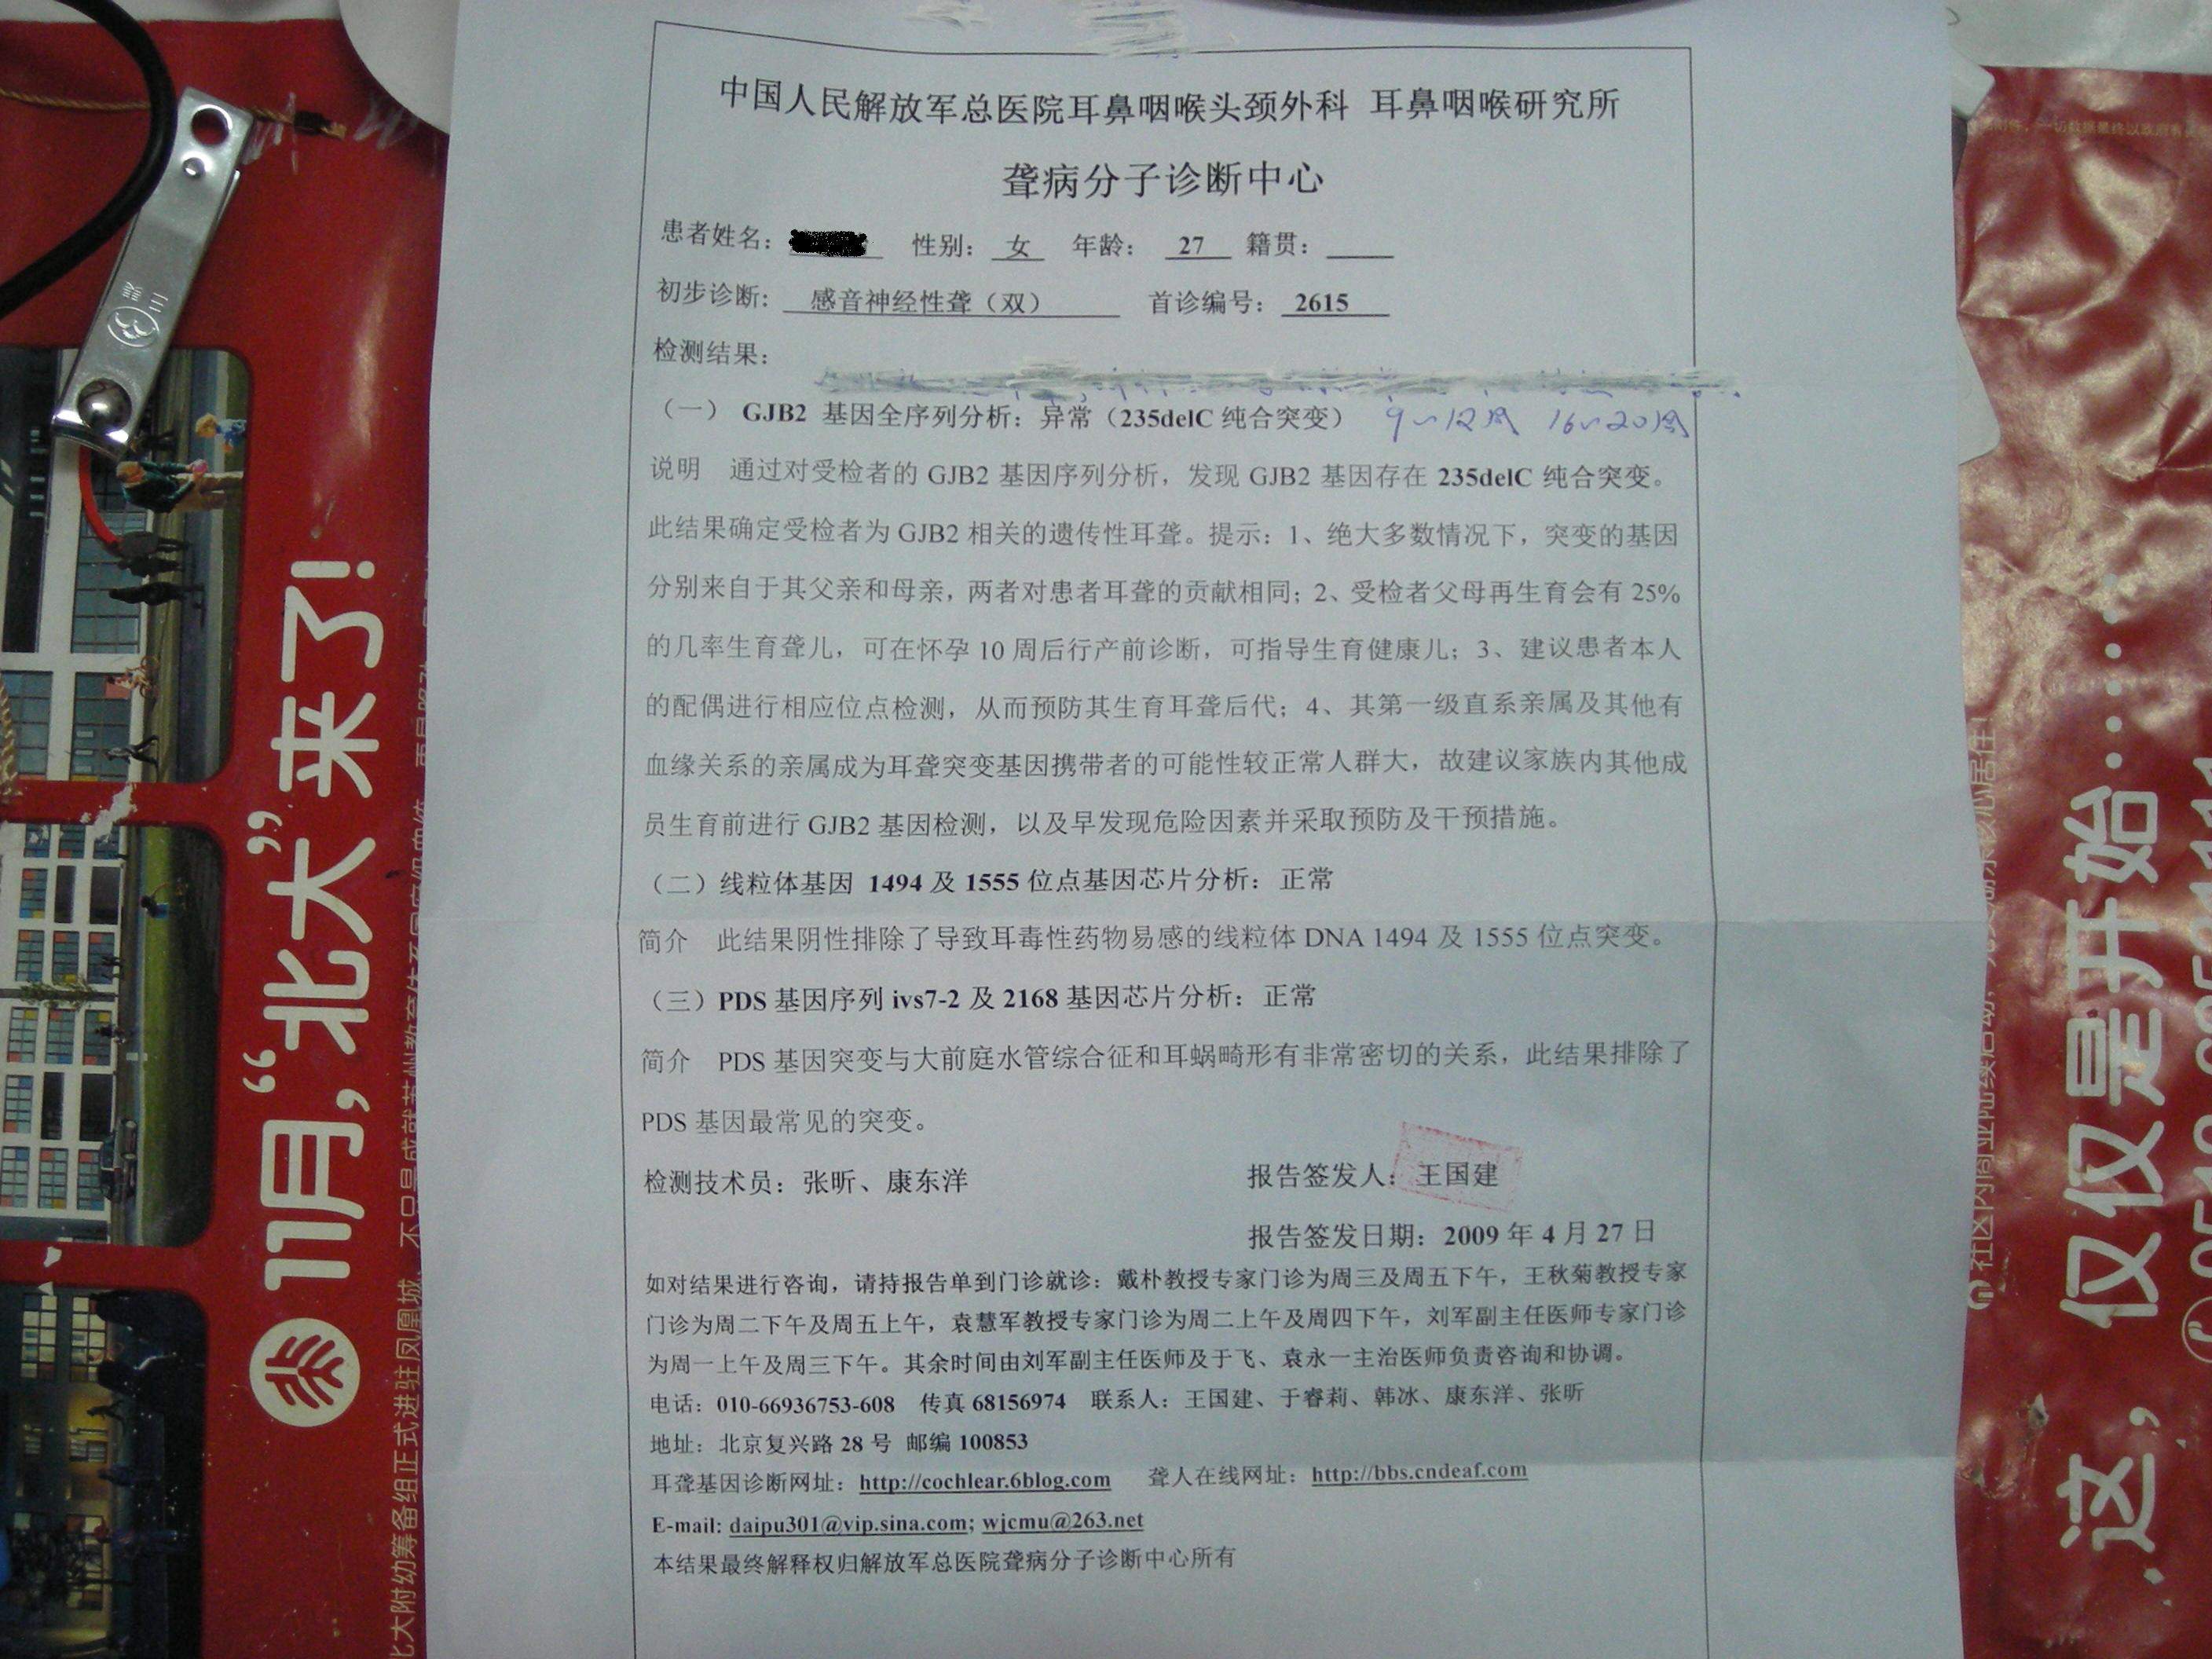 中国人民解放军总医院耳鼻咽喉头颈外科 耳鼻咽喉研究所
聋病分子诊断中心
患者姓名： 性别： 女 年龄： 27 籍贯：
初步诊断： 感音神经性聋（双） 首诊编号： 2615
检测结果：
（一） GJB2 基因全序列分析：异常（235delC 纯合突变） 9~12周 16~20周
说明 通过对受检者的 GJB2 基因序列分析，发现 GJB2 基因存在 235delC 纯合突变。
此结果确定受检者为 GJB2 相关的遗传性耳聋。提示：1、绝大多数情况下，突变的基因
分别来自于其父亲和母亲，两者对患者耳聋的贡献相同；2、受检者父母再生育会有 25%
的几率生育聋儿，可在怀孕 10 周后行产前诊断，可指导生育健康儿；3、建议患者本人
的配偶进行相应位点检测，从而预防其生育耳聋后代；4、其第一级直系亲属及其他有
血缘关系的亲属成为耳聋突变基因携带者的可能性较正常人群大，故建议家族内其他成
员生育前进行 GJB2 基因检测，以及早发现危险因素并采取预防及干预措施。
（二）线粒体基因 1494 及 1555 位点基因芯片分析：正常
简介 此结果阴性排除了导致耳毒性药物易感的线粒体 DNA 1494 及 1555 位点突变。
（三）PDS 基因序列 ivs7-2 及 2168 基因芯片分析：正常
简介 PDS 基因突变与大前庭水管综合征和耳蜗畸形有非常密切的关系，此结果排除了
PDS 基因最常见的突变。
检测技术员：张昕、康东洋 报告签发人：王国建
报告签发日期：2009 年 4 月 27 日
如对结果进行咨询，请持报告单到门诊就诊：戴朴教授专家门诊为周三及周五下午，王秋菊教授专家
门诊为周二下午及周五上午，袁慧军教授专家门诊为周二上午及周四下午，刘军副主任医师专家门诊
为周一上午及周三下午。其余时间由刘军副主任医师及于飞、袁永一主治医师负责咨询和协调。
电话：010-66936753-608 传真 68156974 联系人：王国建、于睿莉、韩冰、康东洋、张昕
地址：北京复兴路 28 号 邮编 100853
耳聋基因诊断网址：http://cochlear.6blog.com 聋人在线网址：http://bbs.cndeaf.com
E-mail: daipu301@vip.sina.com; wjcmu@263.net
本结果最终解释权归解放军总医院聋病分子诊断中心所有
11月，“北大”来了！
北大附幼筹备组正式进驻凤凰城
这，仅仅是开始……